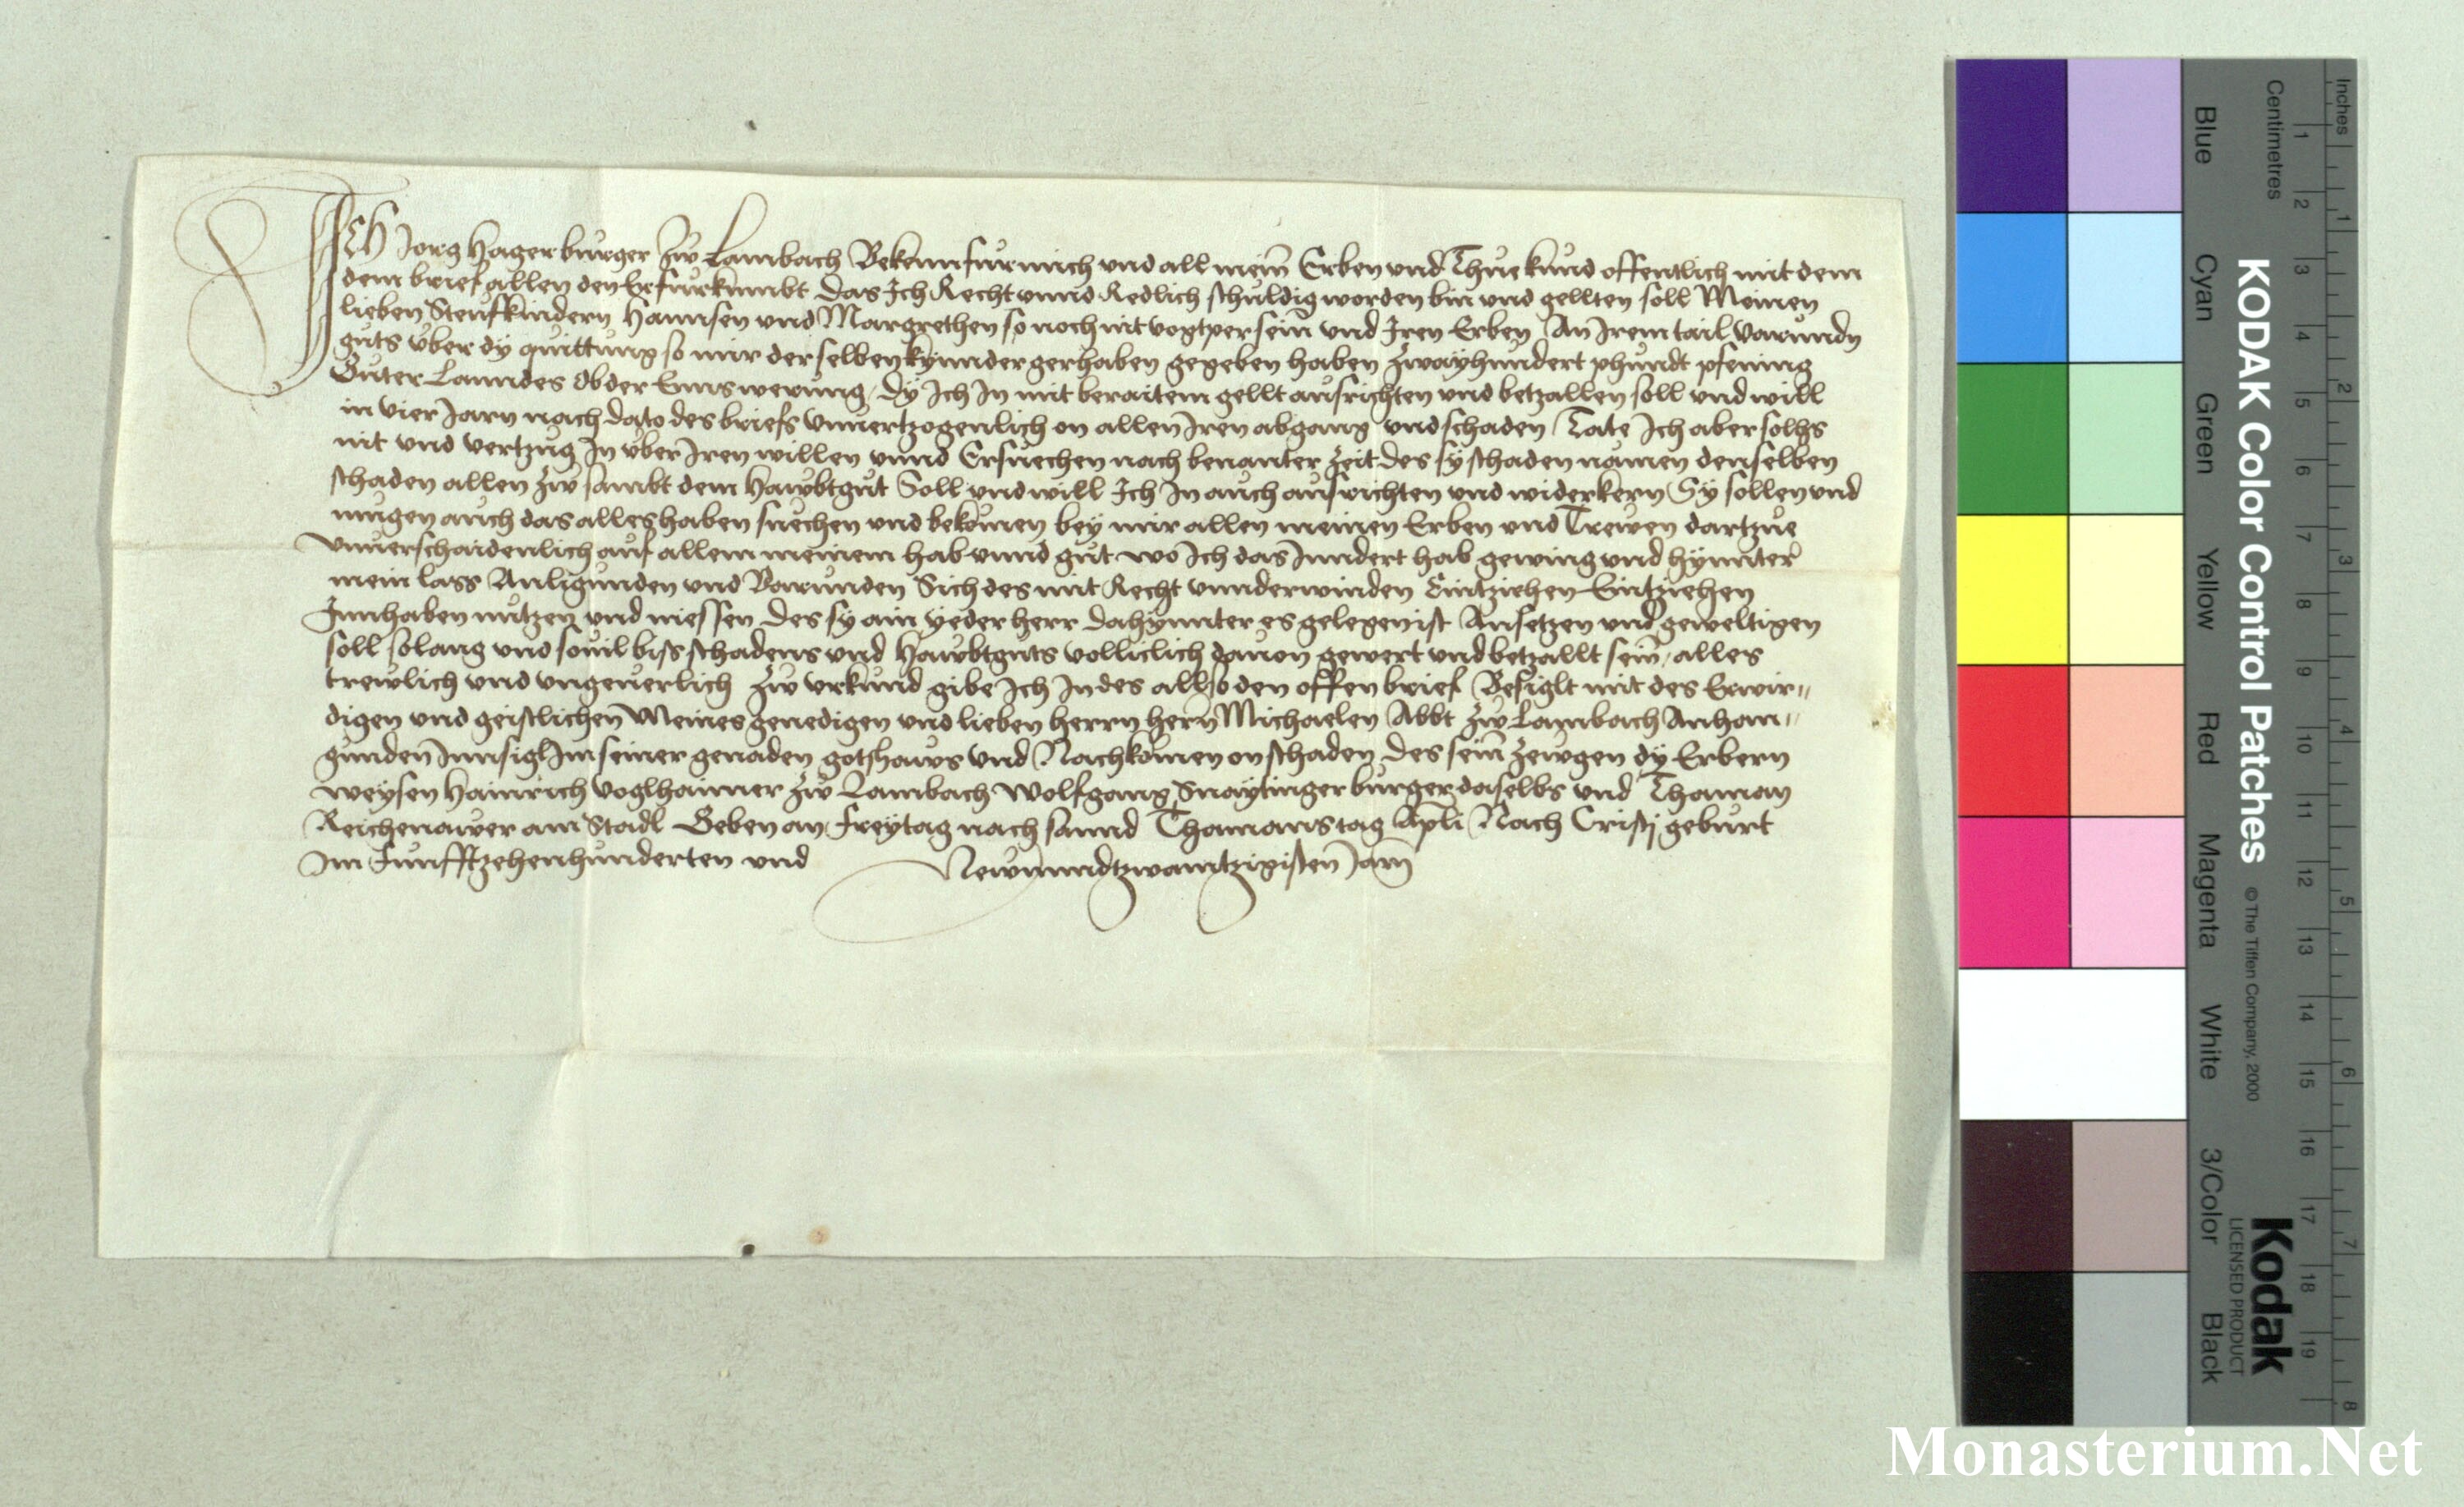 Ich Jorg Hager burger zw Lambach Bekenn fur mich vnd all mein Erben vnd Thue kund offentlich mit dem
dem brief allen den Er furkumbt Das Ich Recht vnnd Redlich schuldig worden bin vnd gellten soll Meinen
lieben Steufkindern Hannsen vnd Margrethen so noch nit vogtper sein vnd Iren Erben An Irem tail Varundn
guts vber dy quittung so mir der selben kynnder gerhaben gegeben haben Zwayhundert phundt pfening
Guter Lanndes Ob der Enns werung / Dy Ich In mit beraitem gellt ausrichten vnd betzallen soll vnd will
in vier Jarn nach dato des briefs vnuertzogenlich on allen Iren abgang vnd schaden Tate Ich aber solhs
nit vnd vertzug In vber Iren willen vnnd Ersuechen nach benanter Zeit des sy schaden namen denselben
schaden allen zw sambt dem Hawbtgut Soll vnd will Ich In auch ausrichten vnd widerkern Sy sollen vnd
mugen auch das alles haben suechen vnd bekomen bey mir allen meinen Erben vnd Trewen dartzue
vnuerschaidenlich auf allem meinem hab vnnd gut wo Ich das Inndert hab gewing vnd hynnter
mein lass Anligunden vnd Varunden Sich des mit Recht vnnderwinden Eintziehen
Innhaben nutzen vnd niessen Des sy ain yeder herr dahynnter es gelegen ist Ansetzen vnd geweltigen
soll solang vnd souil biss schadens vnd Hawbtguts volliclich dauon gewert vnd betzallt sein / alles
trewlich vnd vngeuerlich Zw vrkund gibe Ich In des allso den offen brief Besiglt mit des Erwir〃
digen vnd geistlichen Meines genedigen vnd lieben herrn hern Michaelen Abbt zw Lambach Anhan〃
gunden Innsigl Im seiner genaden gotshaws vnd Nachkomen on schaden Des sein Zewgen dy Erbern
weysen Hainrich Voglhaimer zw Lambach Wolfgang Snaytinger burger daselbs vnd Thaman
Reichenawer am Stadl Geben an Freytag nach sannd Thamans tag Apli Nach Cristj geburt
Im Funfftzehenhunderten vnd Newnundtzwaintzigisten Jarn
KODAK Color Control Patches © The Tiffen Company, 2000
Kodak
LICENSED PRODUCT
Blue Cyan Green Yellow Red Magenta White 3/Color Black
Centimetres 1 2 3 4 5 6 7 8 9 10 11 12 13 14 15 16 17 18 19
Inches 1 2 3 4 5 6 7 8
Monasterium.Net